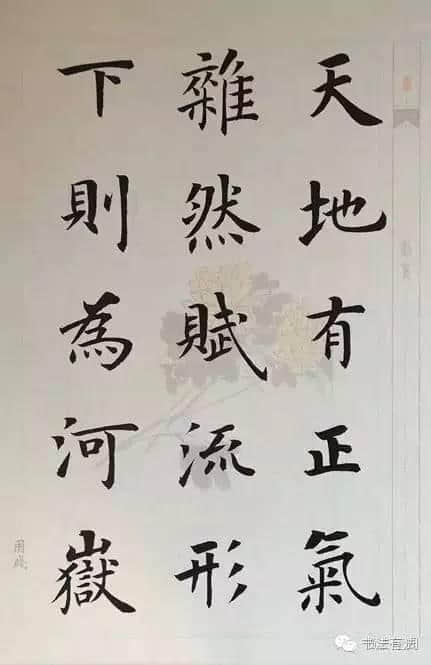 天地有正氣
雜然賦流形
下則為河嶽
书法有调